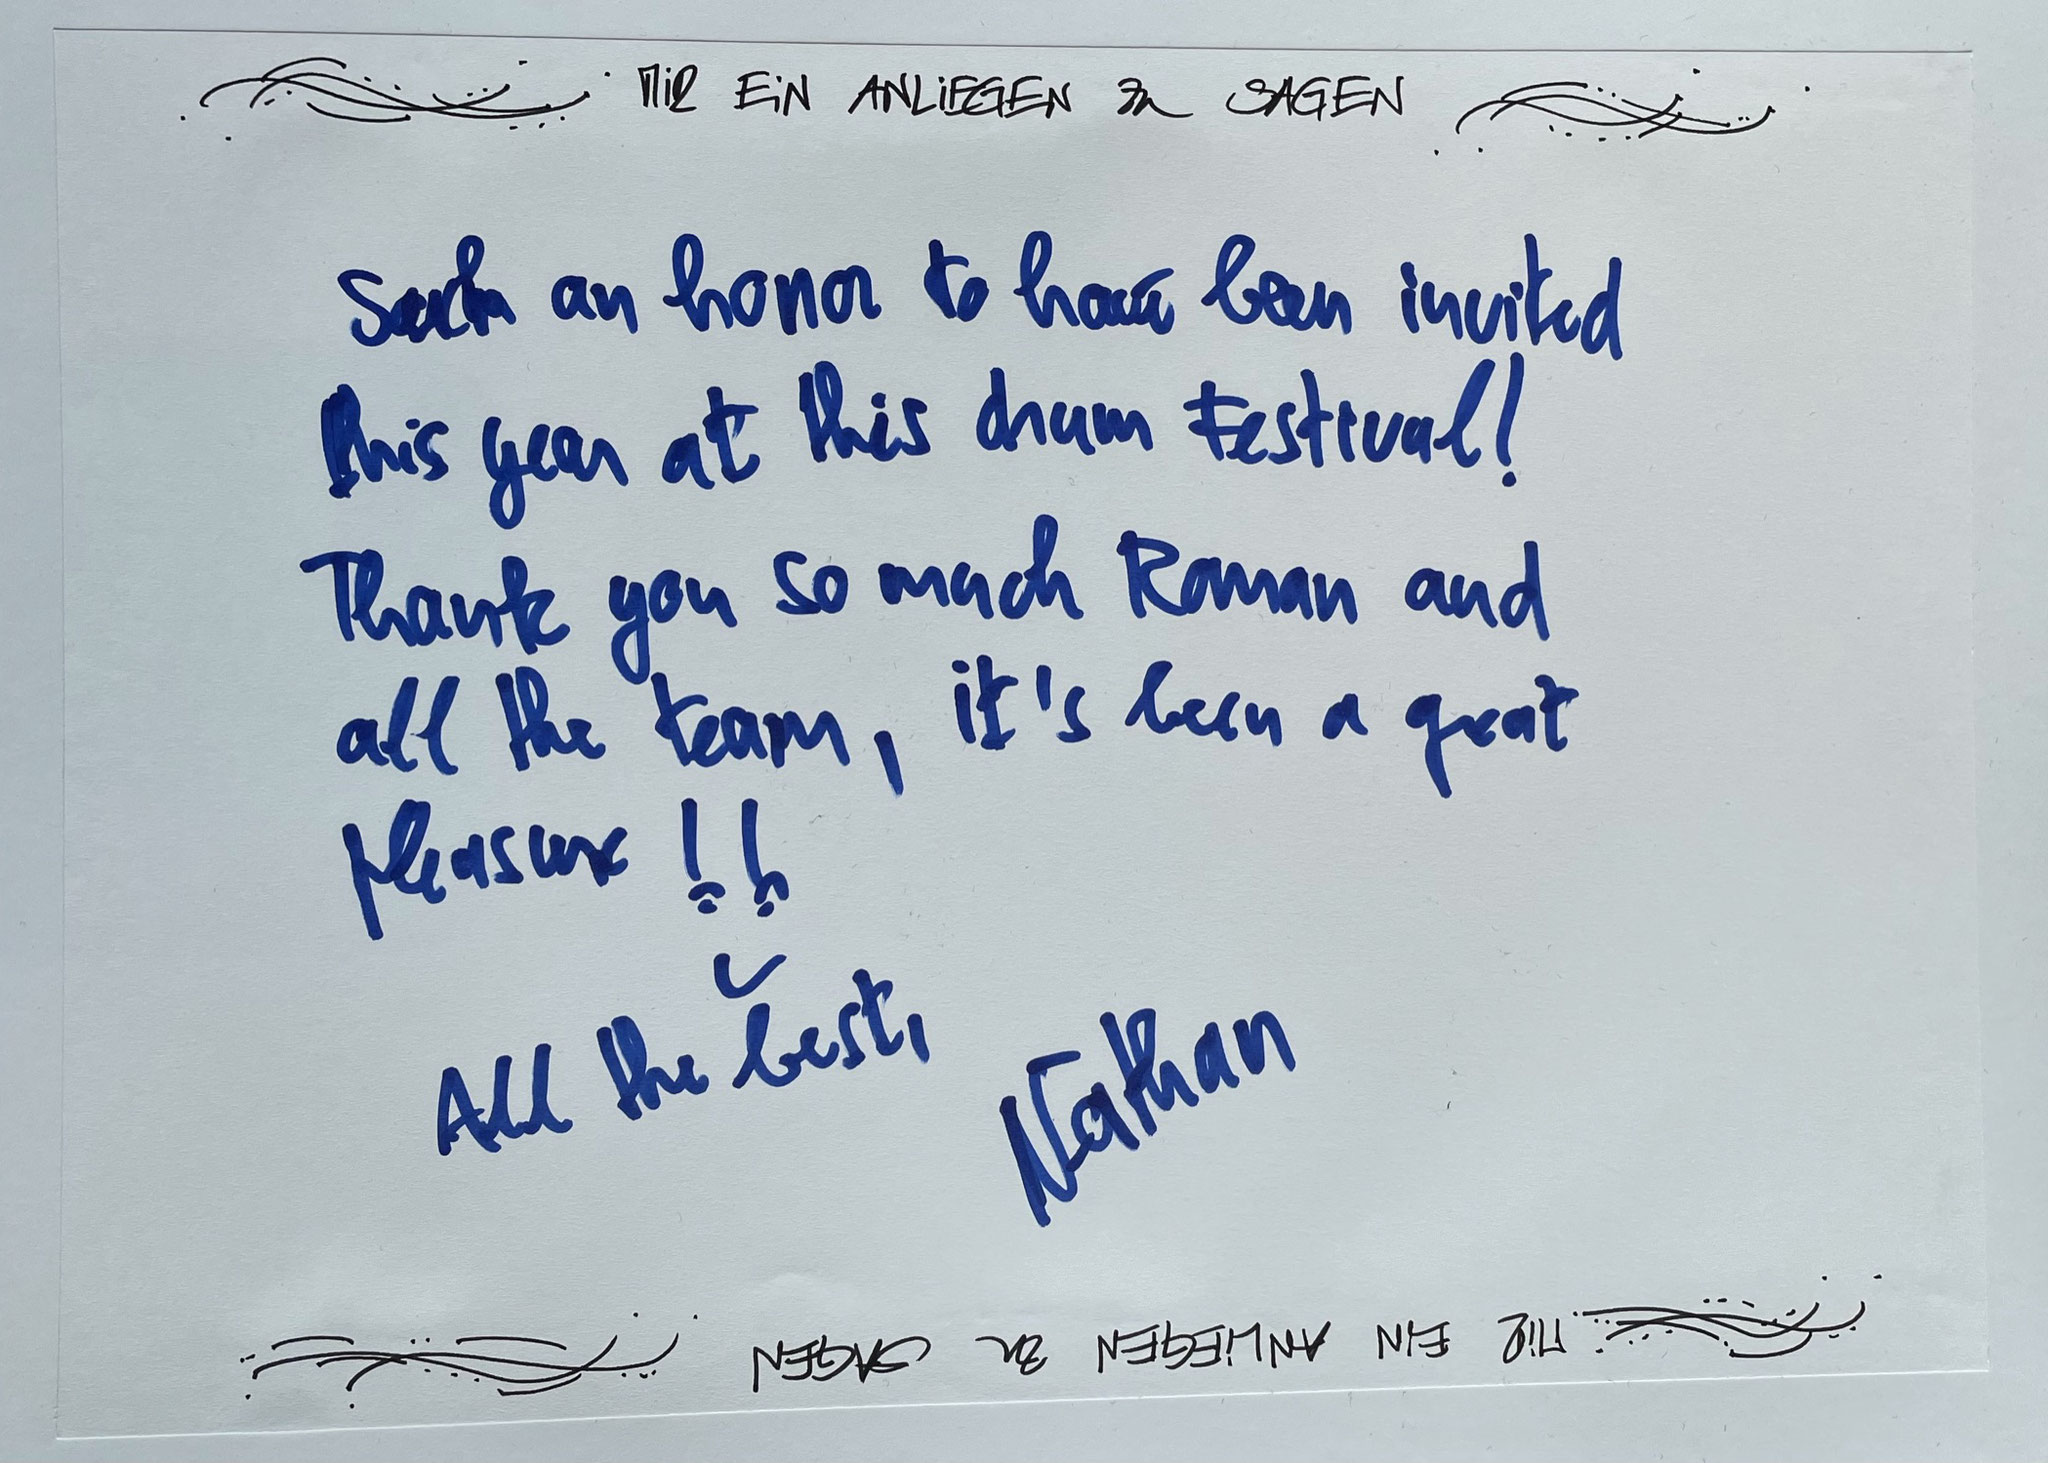 MiR EiN ANLiEGEN zu SAGEN
Such an honor to have been invited
this year at this drum Festival!
Thank you so much Roman and
all the team, it's been a great
pleasure !!
All the best,
Nathan
MiR EiN ANLiEGEN zu SAGEN